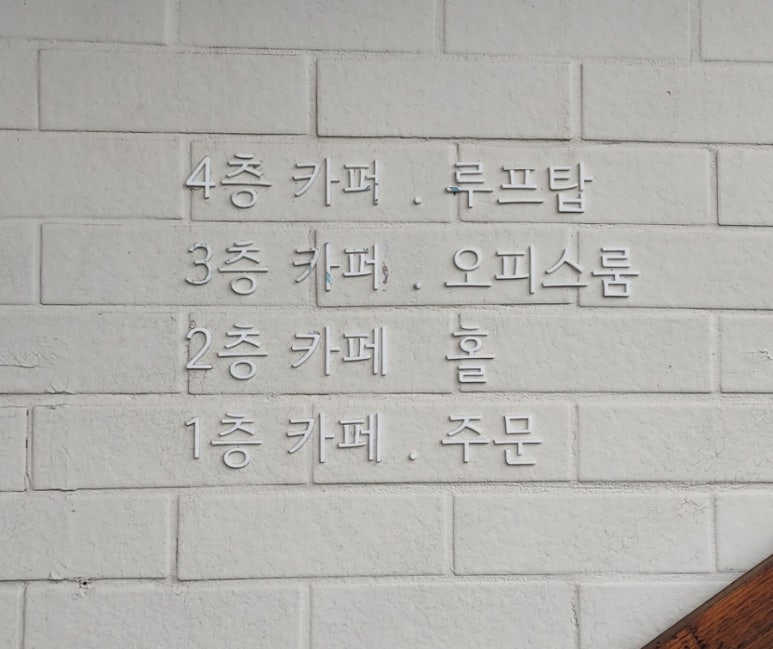 4층 카퍼 . 루프탑
3층 카페 . 오피스룸
2층 카페 홀
1층 카페 . 주문